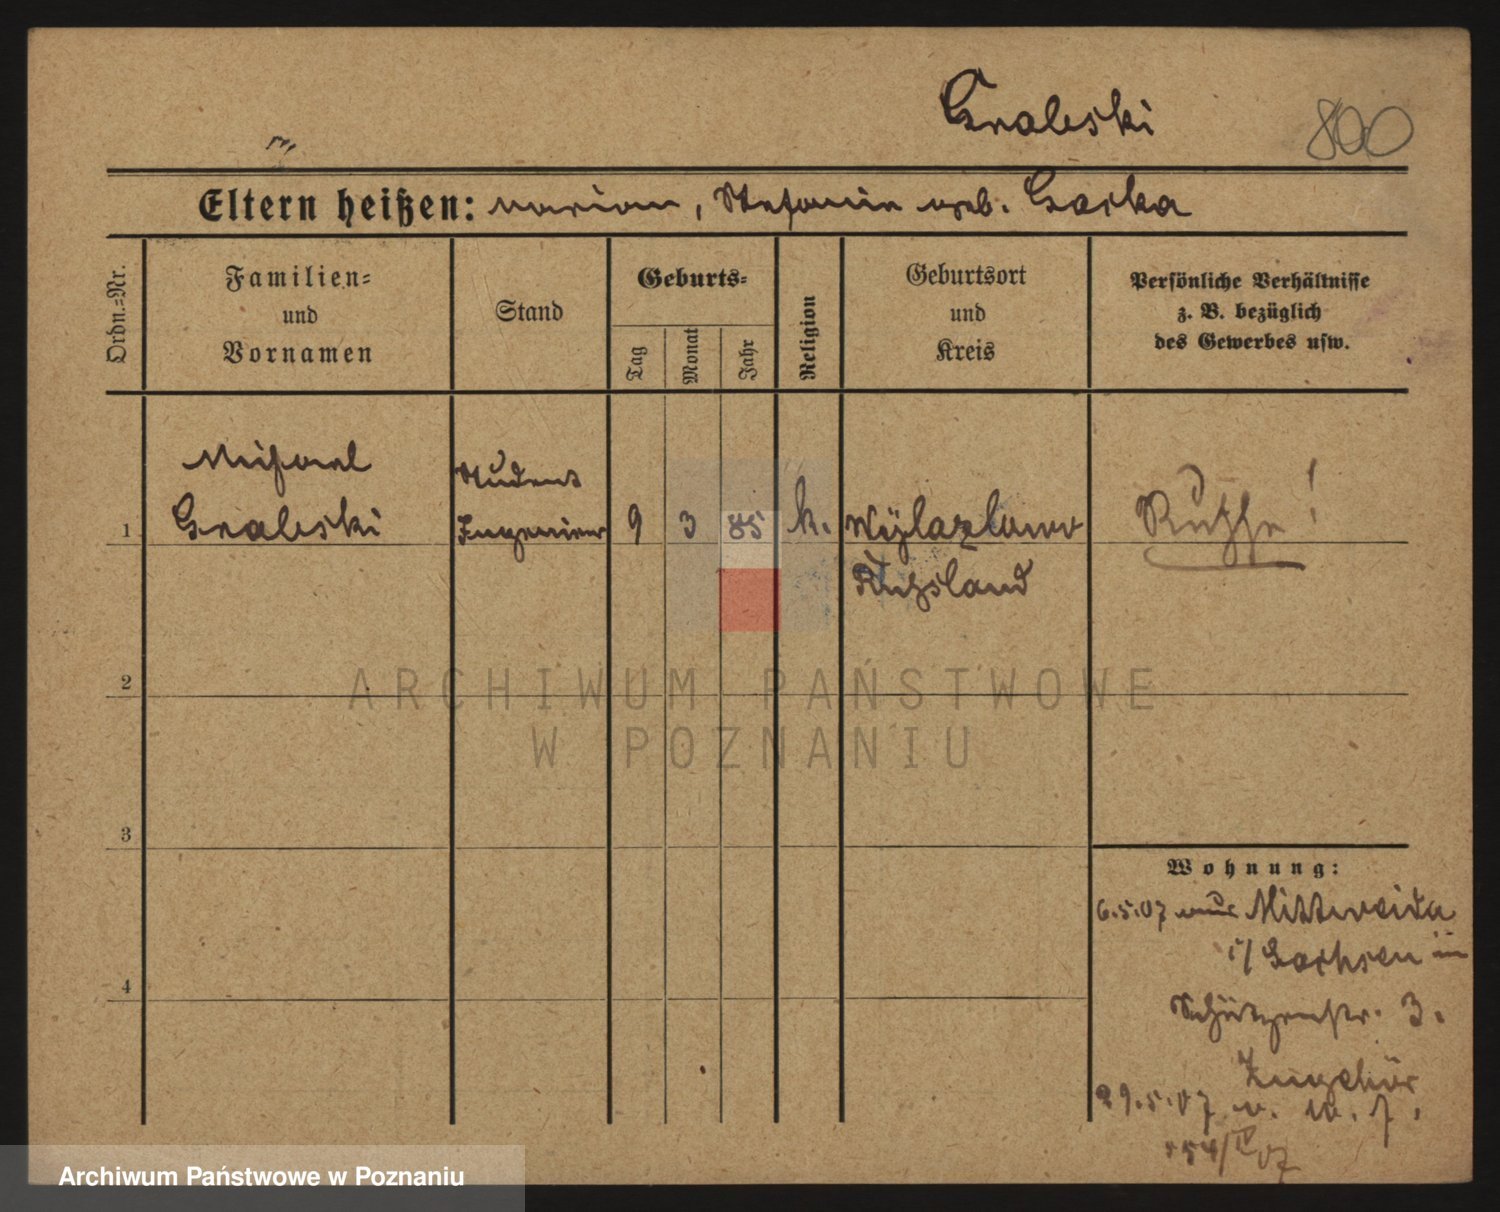 Graleski
800
Eltern heißen: Marian, Stefanie geb. Gorka
Ordn.=Nr.
Familien=
und
Vornamen
Stand
Geburts=
Tag
Monat
Jahr
Religion
Geburtsort
und
Kreis
Persönliche Verhältnisse
z. B. bezüglich
des Gewerbes usw.
Student
1
Graleski
Ingenieur
9 3 85 k.
Russe!
Russland
2
ARCHIWUM PAŃSTWOWE
W POZNANIU
3
Wohnung:
6.5.07 aus Mittweida
i/ Sachsen in
4
Schützenstr. 3.
29.5.07
Archiwum Państwowe w Poznaniu